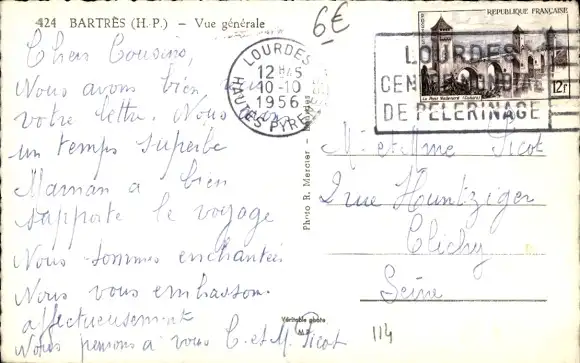 424 BARTRÈS (H.P.) - Vue générale
6€
Chers Cousins,
Nous avons bien
votre lettre. Nous
un temps superbe
Maman a bien
supporte le voyage
Nous sommes enchantées
Nous vous embrassons
affectueusement
Nous pensons a vous C. et M. Picot
LOURDES
12H45
10-10
1956
HAUTES PYRENEES
REPUBLIQUE FRANÇAISE
CAHORS
Le Pont Valentré
12F
LOURDES
CENTRE
DE PELERINAGE
Photo R. Mercier - Lourdes
Mr et Mme Picot
2 rue Huntziger
Clichy
Seine
Véritable photo
114